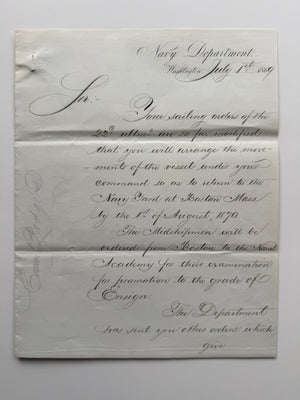 Navy Department
Washington July 1st 1869
Sir:-
Your sailing orders of the
22d ulto are so far modified
that you will arrange the move-
ments of the vessel under your
command so as to return to the
Navy Yard at Boston Mass
by the 1st of August, 1870.
The Midshipmen will be
ordered from Boston to the Naval
Academy for their examination
for promotion to the grade of
Ensign.
The Department
has sent you other orders which
give